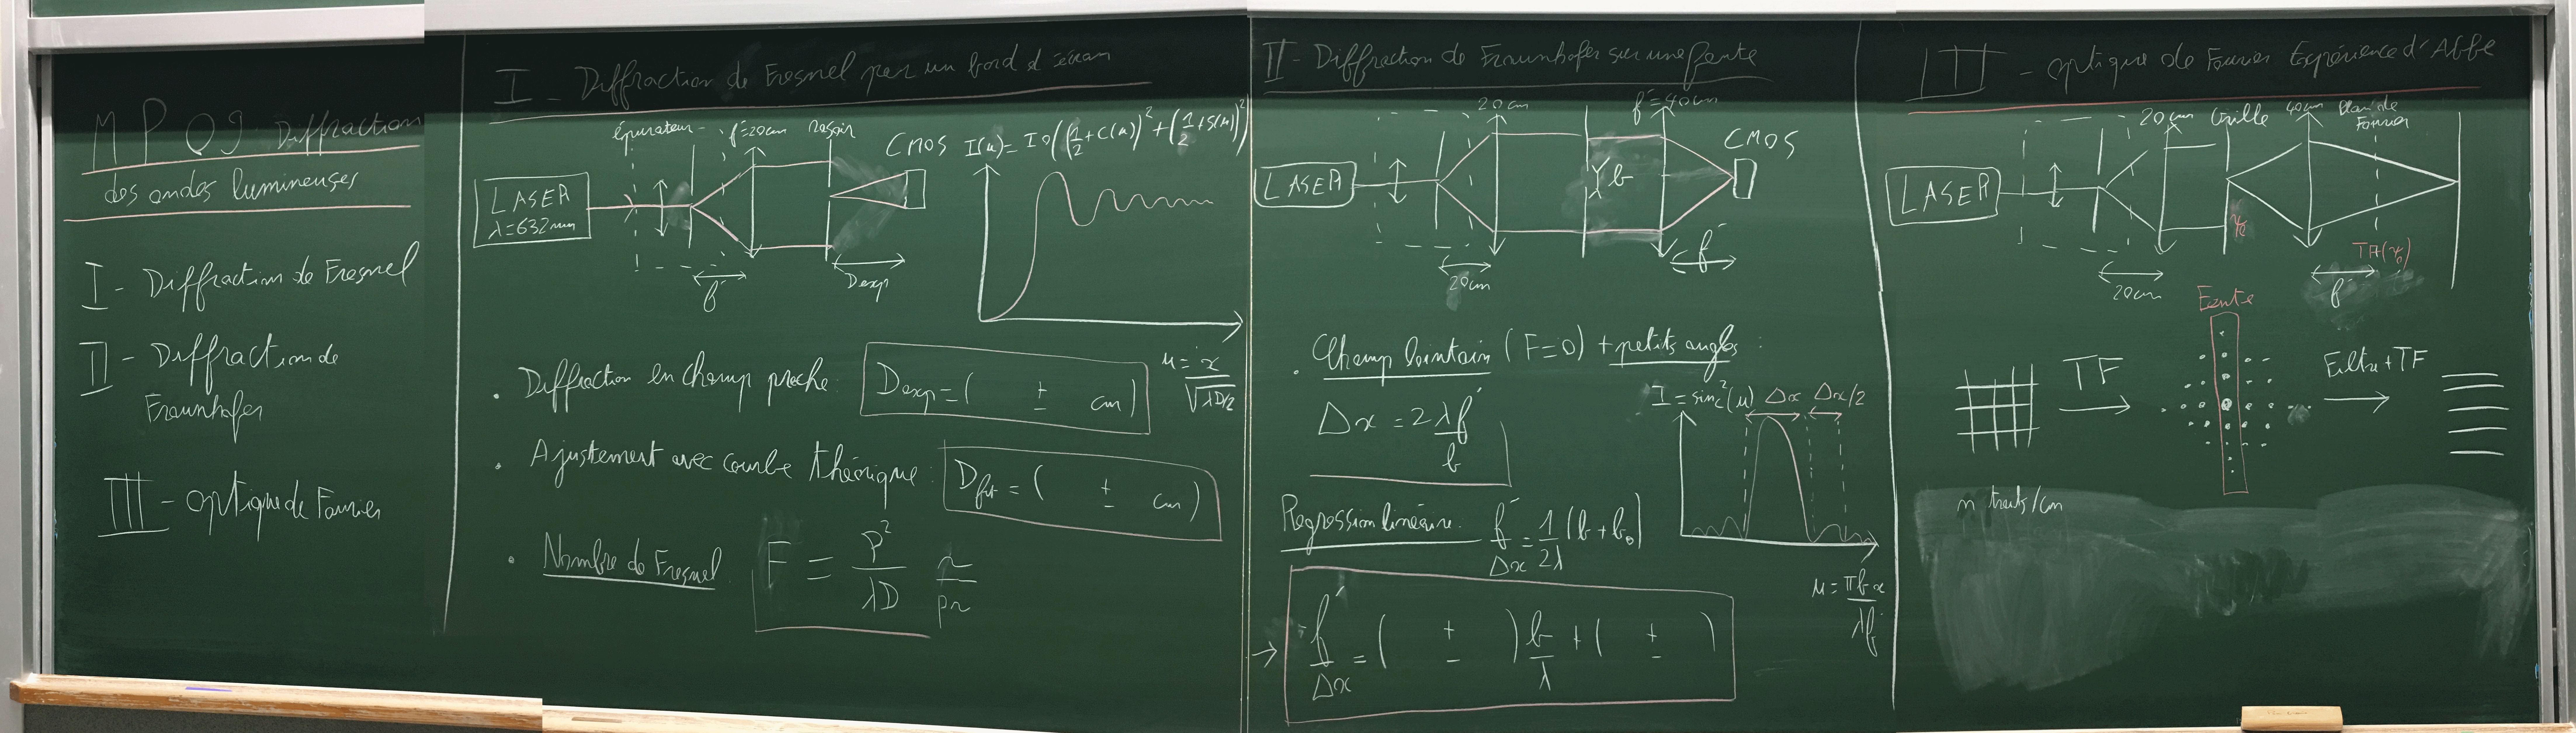 MP09 Diffraction
des ondes lumineuses
I - Diffraction de Fresnel
II - Diffraction de
Fraunhofer
III - optique de Fourier
I - Diffraction de Fresnel par un bord d'écran
épurateur
f'=20cm
rasoir
CMOS
I(u) = I0((1/2+C(u))²+(1/2+S(u))²)
LASER
λ=632nm
f'
Dexp
u = x/√(λD/2)
. Diffraction en champ proche : Dexp = (   ±   cm)
. Ajustement avec courbe théorique : Dfit = (   ±   cm)
. Nombre de Fresnel F = ρ²/λD
II - Diffraction de Fraunhofer sur une fente
20cm
f'=40cm
CMOS
LASER
b
20cm
f'
. Champ lointain (F=0) + petits angles :
I = sinc²(u)
Δx
Δx/2
Δx = 2 λf'/b
Regression linéaire. f'/Δx = 1/2λ (b+b0)
u = πbx/λf'
→ f'/Δx = (   ±   ) b/λ + (   ±   )
III - optique de Fourier Expérience d'Abbe
20cm
Grille
40cm
Plan de
Fourier
LASER
TF(ψ0)
20cm
f'
Fente
TF
Filtre+TF
n traits/cm